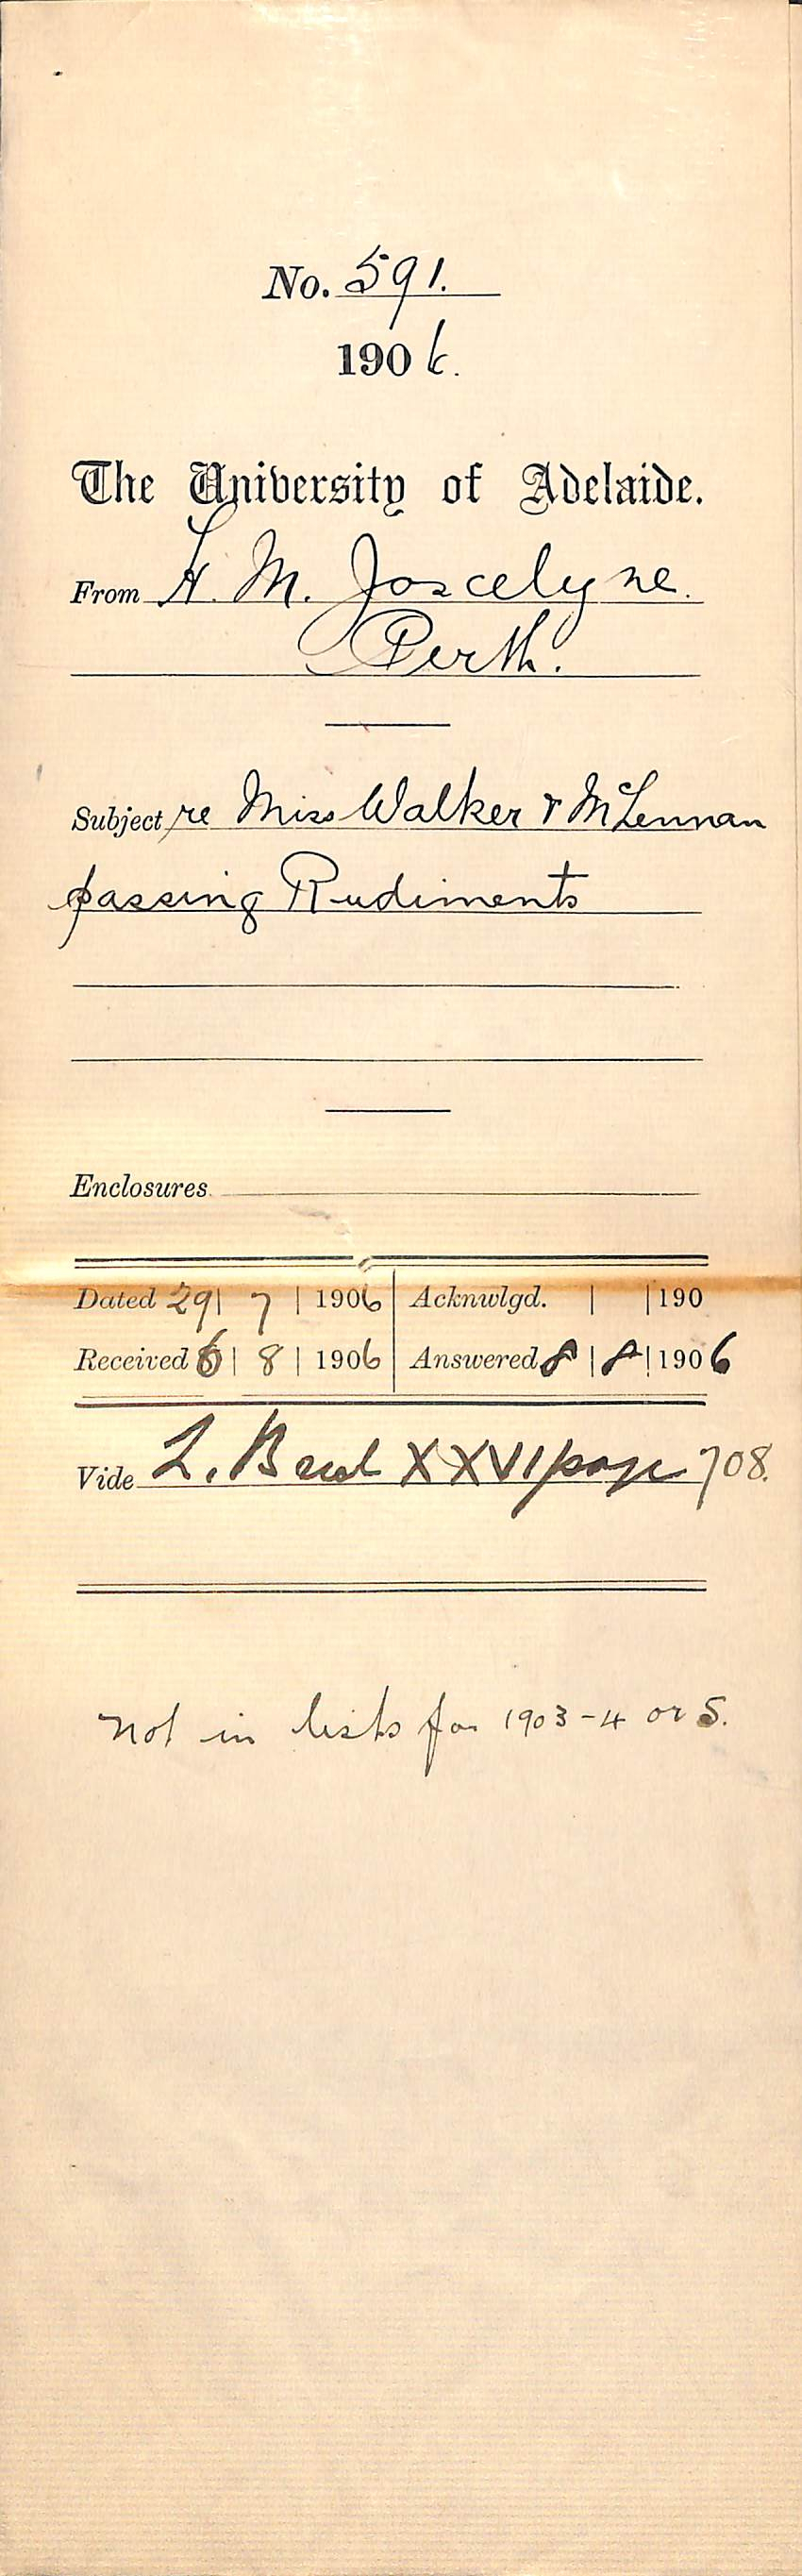 No. 591.
1906.
The University of Adelaide.
From H. M. Joscelyne.
Perth.
Subject re Miss Walker & McLennan
passing Rudiments
Enclosures
Dated 29 | 7 | 1906 | Acknwlgd. | | 190
Received 6 | 8 | 1906 | Answered 8 | 8 | 1906
Vide L. Book XXVI page 708.
Not in lists for 1903-4 or 5.